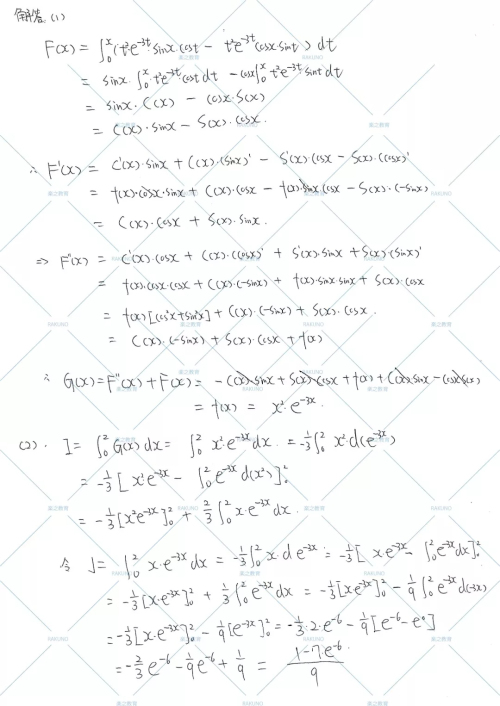 解答 (1)
F(x) = ∫₀ˣ (t²e⁻³ᵗ sinx cost − t²e⁻³ᵗ cosx sint) dt
= sinx·∫₀ˣ t²e⁻³ᵗ cost dt − cosx ∫₀ˣ t²e⁻³ᵗ sint dt
= sinx·C(x) − cosx·S(x)
= C(x)·sinx − S(x)·cosx.
∴ F'(x) = C'(x)·sinx + C(x)·(sinx)' − S'(x)·cosx − S(x)·(cosx)'
= f(x)·cosx·sinx + C(x)·cosx − f(x)·sinx·cosx − S(x)·(−sinx)
= C(x)·cosx + S(x)·sinx.
⇒ F''(x) = C'(x)·cosx + C(x)·(cosx)' + S'(x)·sinx + S(x)·(sinx)'
= f(x)·cosx·cosx + C(x)·(−sinx) + f(x)·sinx·sinx + S(x)·cosx
= f(x)[cos²x+sin²x] + C(x)·(−sinx) + S(x)·cosx.
= C(x)·(−sinx) + S(x)·cosx + f(x)
∴ G(x) = F''(x) + F(x) = −C(x)·sinx + S(x)·cosx + f(x) + C(x)·sinx − cosx·S(x)
= f(x) = x²·e⁻³ˣ.
(2). I = ∫₀² G(x) dx = ∫₀² x²e⁻³ˣ dx = −1/3 ∫₀² x² d(e⁻³ˣ)
= −1/3 [x²e⁻³ˣ − ∫₀² e⁻³ˣ d(x²)]₀²
= −1/3 [x²e⁻³ˣ]₀² + 2/3 ∫₀² x·e⁻³ˣ dx.
令 J = ∫₀² x·e⁻³ˣ dx = −1/3 ∫₀² x·d e⁻³ˣ = −1/3 [x e⁻³ˣ − ∫₀² e⁻³ˣ dx]₀²
= −1/3 [x·e⁻³ˣ]₀² + 1/3 ∫₀² e⁻³ˣ dx = −1/3 [x e⁻³ˣ]₀² − 1/9 ∫₀² e⁻³ˣ d(−3x)
= −1/3 [x·e⁻³ˣ]₀² − 1/9 [e⁻³ˣ]₀² = −1/3·2·e⁻⁶ − 1/9 [e⁻⁶ − e⁰]
= −2/3 e⁻⁶ − 1/9 e⁻⁶ + 1/9 = (1−7·e⁻⁶)/9